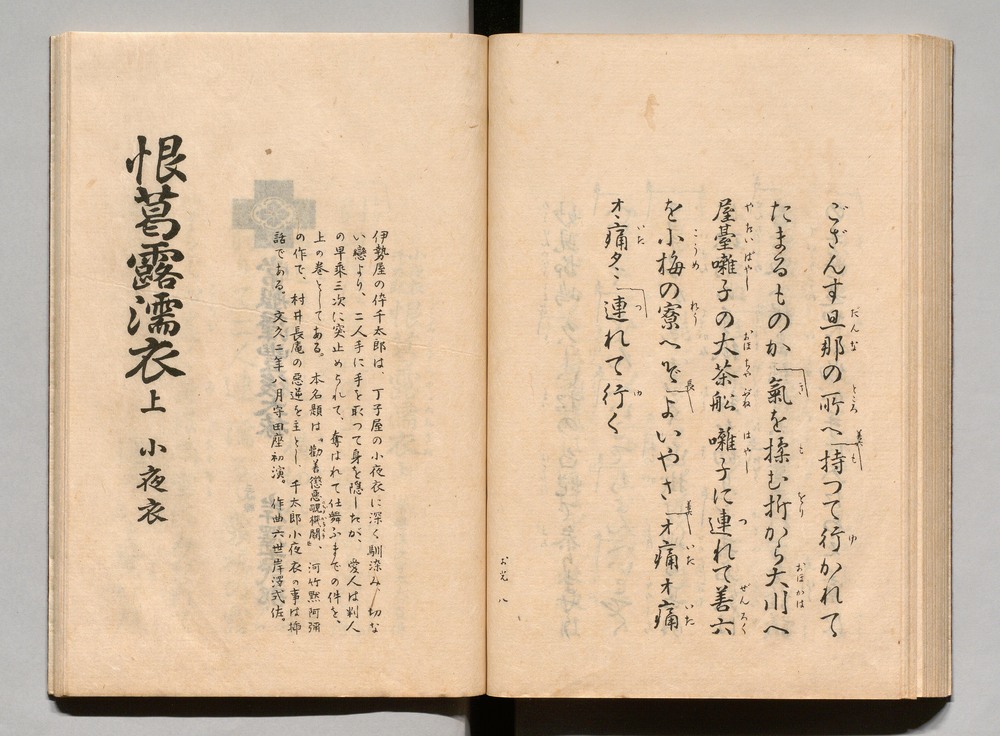 ござんす旦那の所へ持つて行かれて
たまるものか氣を揉む折から大川へ
屋臺囃子の大茶船囃子に連れて善六
を小梅の寮へぞよいやさオ痛オ痛
オヽ痛タヽ連れて行く
お光 八
伊勢屋の伜千太郎は、丁子屋の小夜衣に深く馴染み、切な
い戀より、二人手に手を取つて身を隱したが、愛人は判人
の早乘三次に突止められて、奪はれて仕舞ふまでの件を、
上の巻としてある。本名題は〝勸善懲惡覗機關〟、河竹黙阿彌
の作で、村井長庵の惡逆を主とし、千太郎小夜衣の事は揷
話である。文久二年八月守田座初演。作曲六世岸澤式佐。
恨葛露濡衣 上 小夜衣